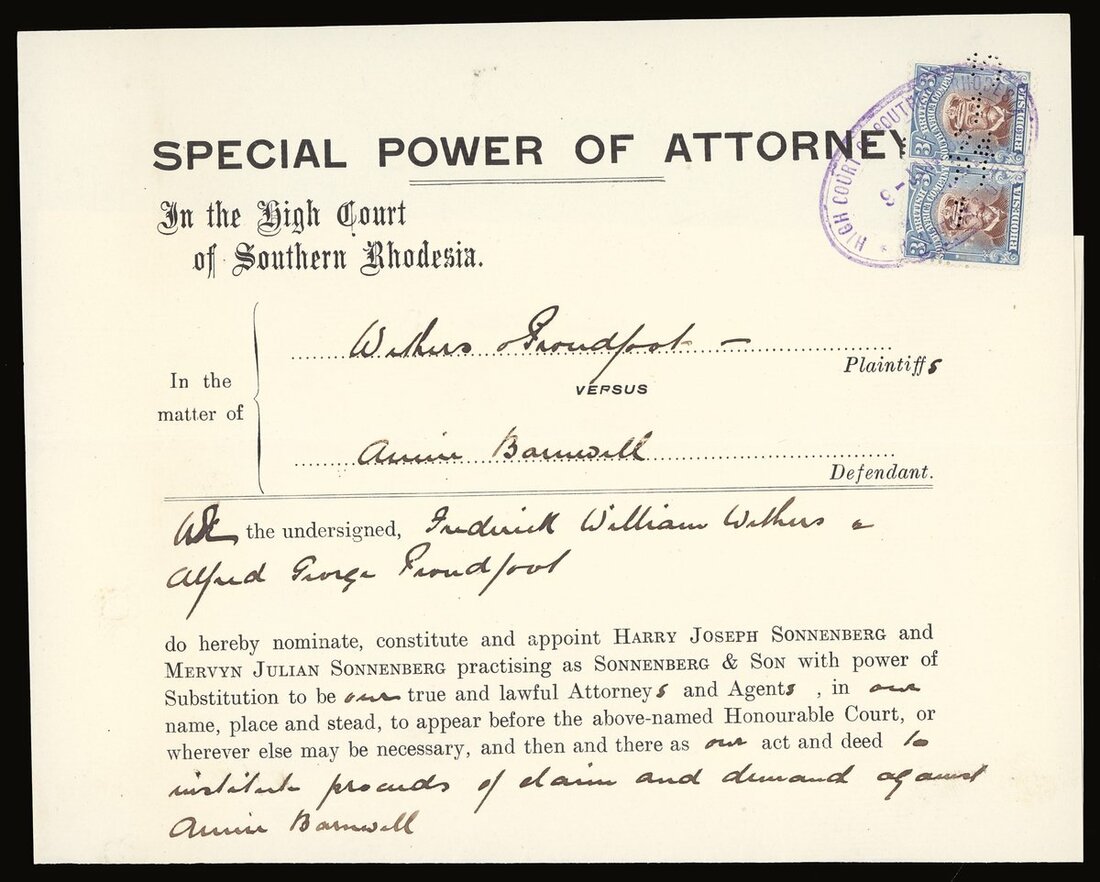 SPECIAL POWER OF ATTORNEY
In the High Court
of Southern Rhodesia.
HIGH COURT SOUTH RHODES
3/
BRITISH
SOUTH AFRICA COMPANY
RHODESIA
3/
BRITISH
SOUTH AFRICA COMPANY
RHODESIA
In the
matter of
Withers & Proudfoot —
Plaintiffs
VERSUS
Annie Barnwell
Defendant.
We the undersigned, Frederick William Withers &
Alfred George Proudfoot
do hereby nominate, constitute and appoint HARRY JOSEPH SONNENBERG and
MERVYN JULIAN SONNENBERG practising as SONNENBERG & SON with power of
Substitution to be our true and lawful Attorneys and Agents , in our
name, place and stead, to appear before the above-named Honourable Court, or
wherever else may be necessary, and then and there as our act and deed to
institute proceeds of claim and demand against
Annie Barnwell